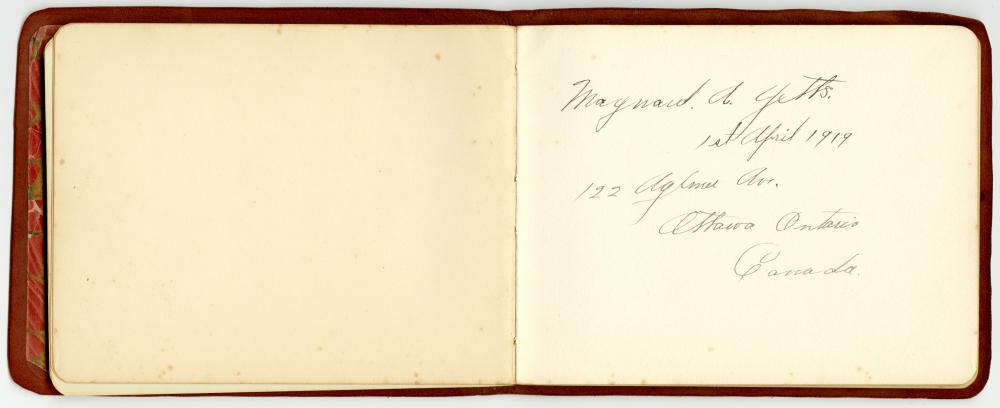 Maynard. A. Yetts.
1st April 1919
122 Aylmer Ave.
Ottawa Ontario
Canada.